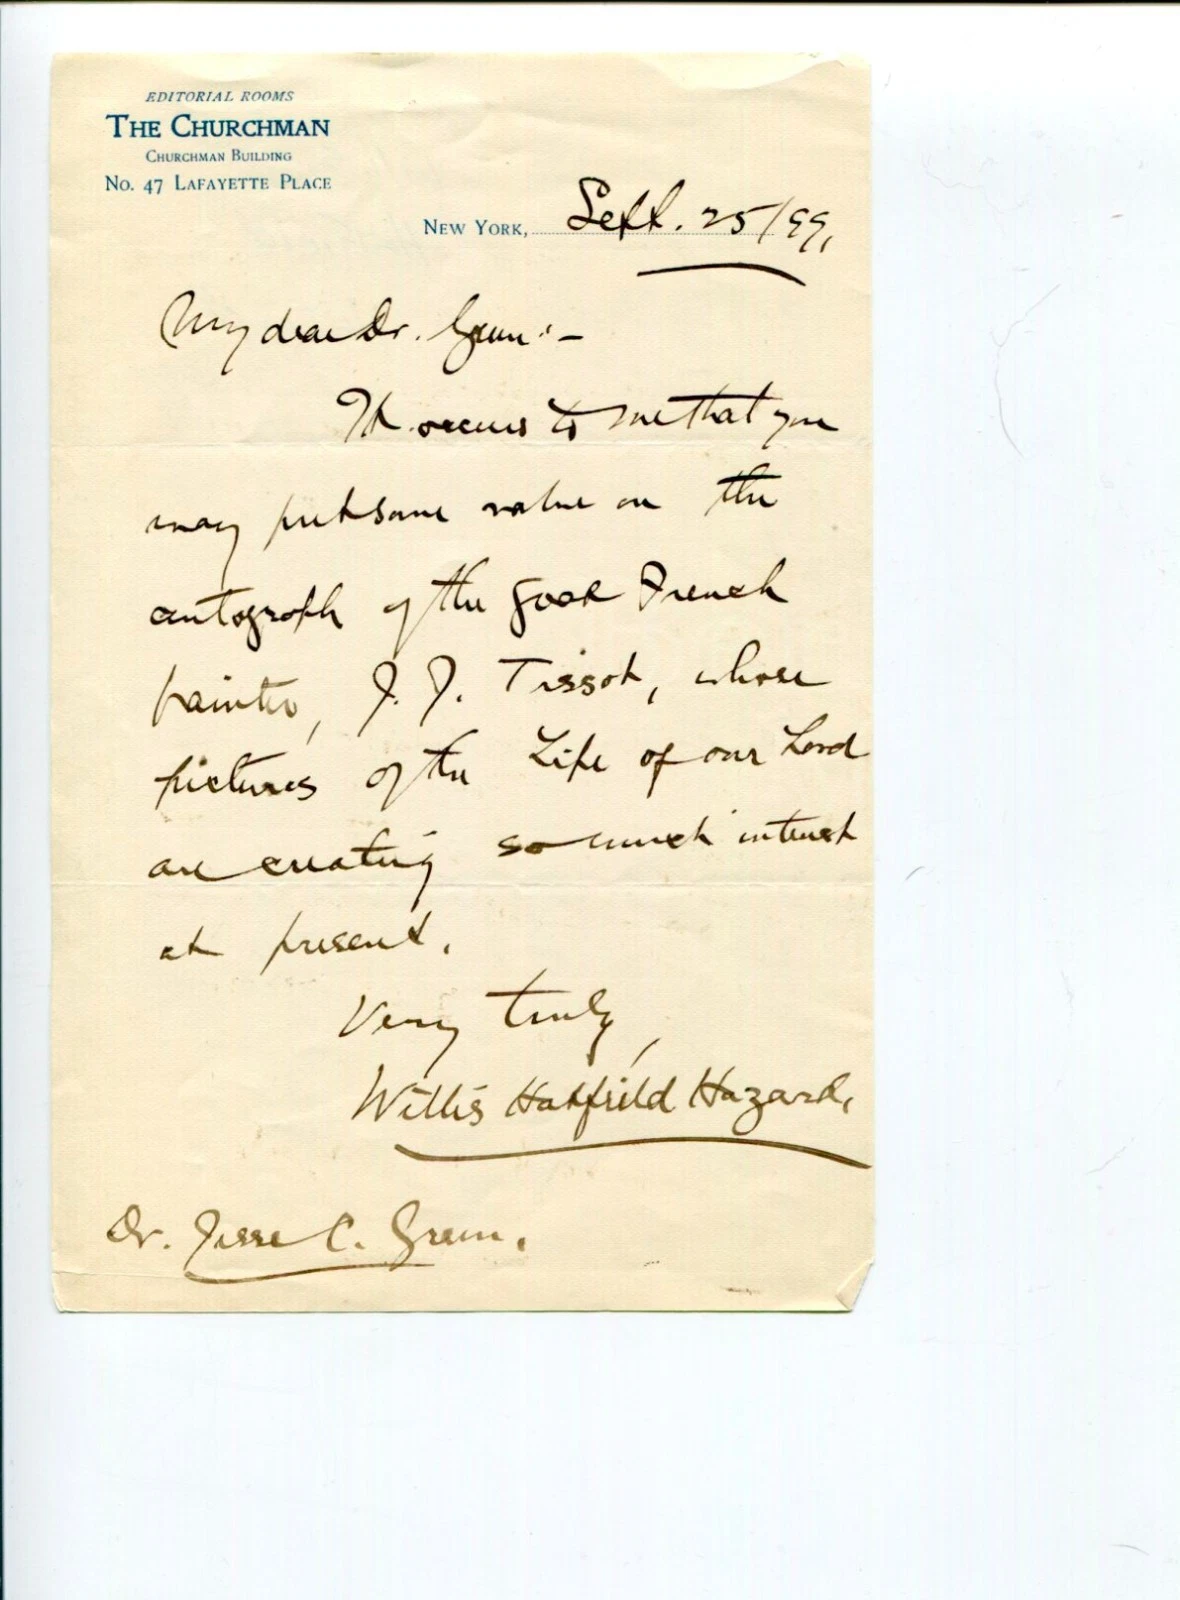 EDITORIAL ROOMS
THE CHURCHMAN
CHURCHMAN BUILDING
NO. 47 LAFAYETTE PLACE
NEW YORK, Sept. 25/99,
My dear Dr. Green:-
It occurs to me that you
may put some value on the
autograph of the good French
painter, J. J. Tissot, whose
pictures of the Life of our Lord
are creating so much interest
at present.
Very truly,
Willis Hatfield Hazard,
Dr. Jesse C. Green.